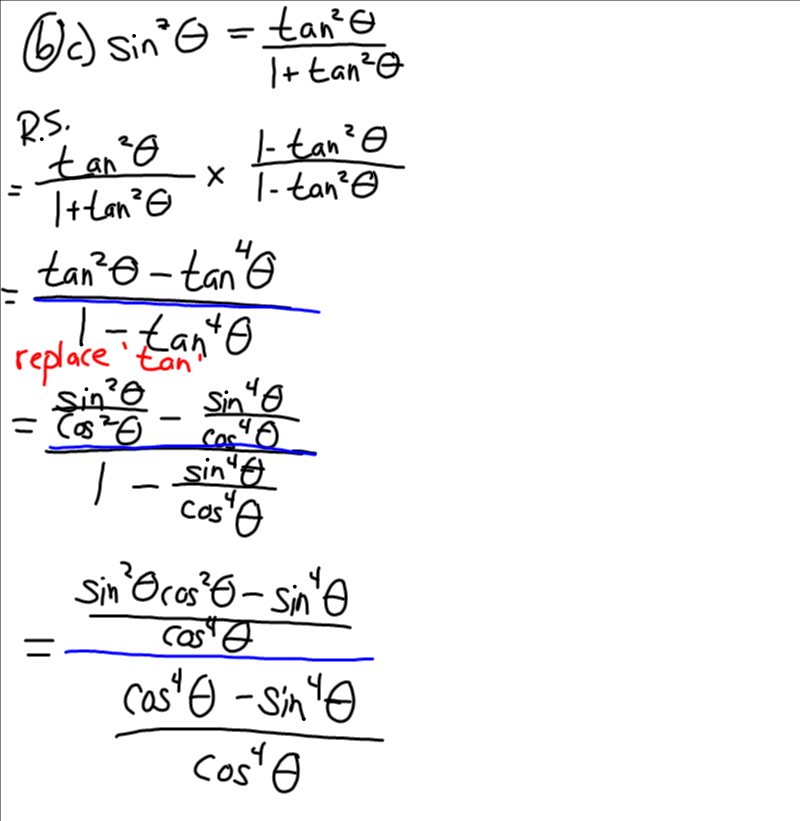 6c) sin²θ = tan²θ / 1 + tan²θ
R.S.
= tan²θ / 1 + tan²θ × 1 - tan²θ / 1 - tan²θ
= tan²θ - tan⁴θ / 1 - tan⁴θ
replace 'tan'
= sin²θ / cos²θ - sin⁴θ / cos⁴θ / 1 - sin⁴θ / cos⁴θ
= sin²θcos²θ - sin⁴θ / cos⁴θ / cos⁴θ - sin⁴θ / cos⁴θ